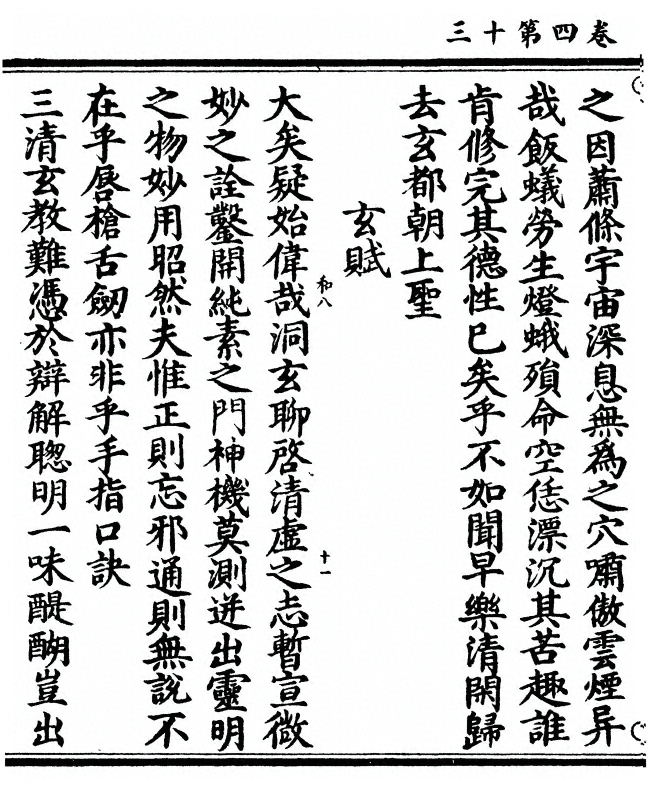 三十第四卷
之因蕭條宇宙深息無爲之穴嘯傲雲煙异
哉飯蟻勞生燈蛾殞命空恁漂沉其苦趣誰
肯修完其德性已矣乎不如聞早樂清閑歸
去玄都朝上聖
玄賦
和八
十一
大矣疑始偉哉洞玄聊啓清虛之志暫宣微
妙之詮鑿開純素之門神機莫測迸出靈明
之物妙用昭然夫惟正則忘邪通則無說不
在乎唇槍舌劒亦非乎手指口訣
三清玄教難憑於辯解聦明一味醍醐豈出